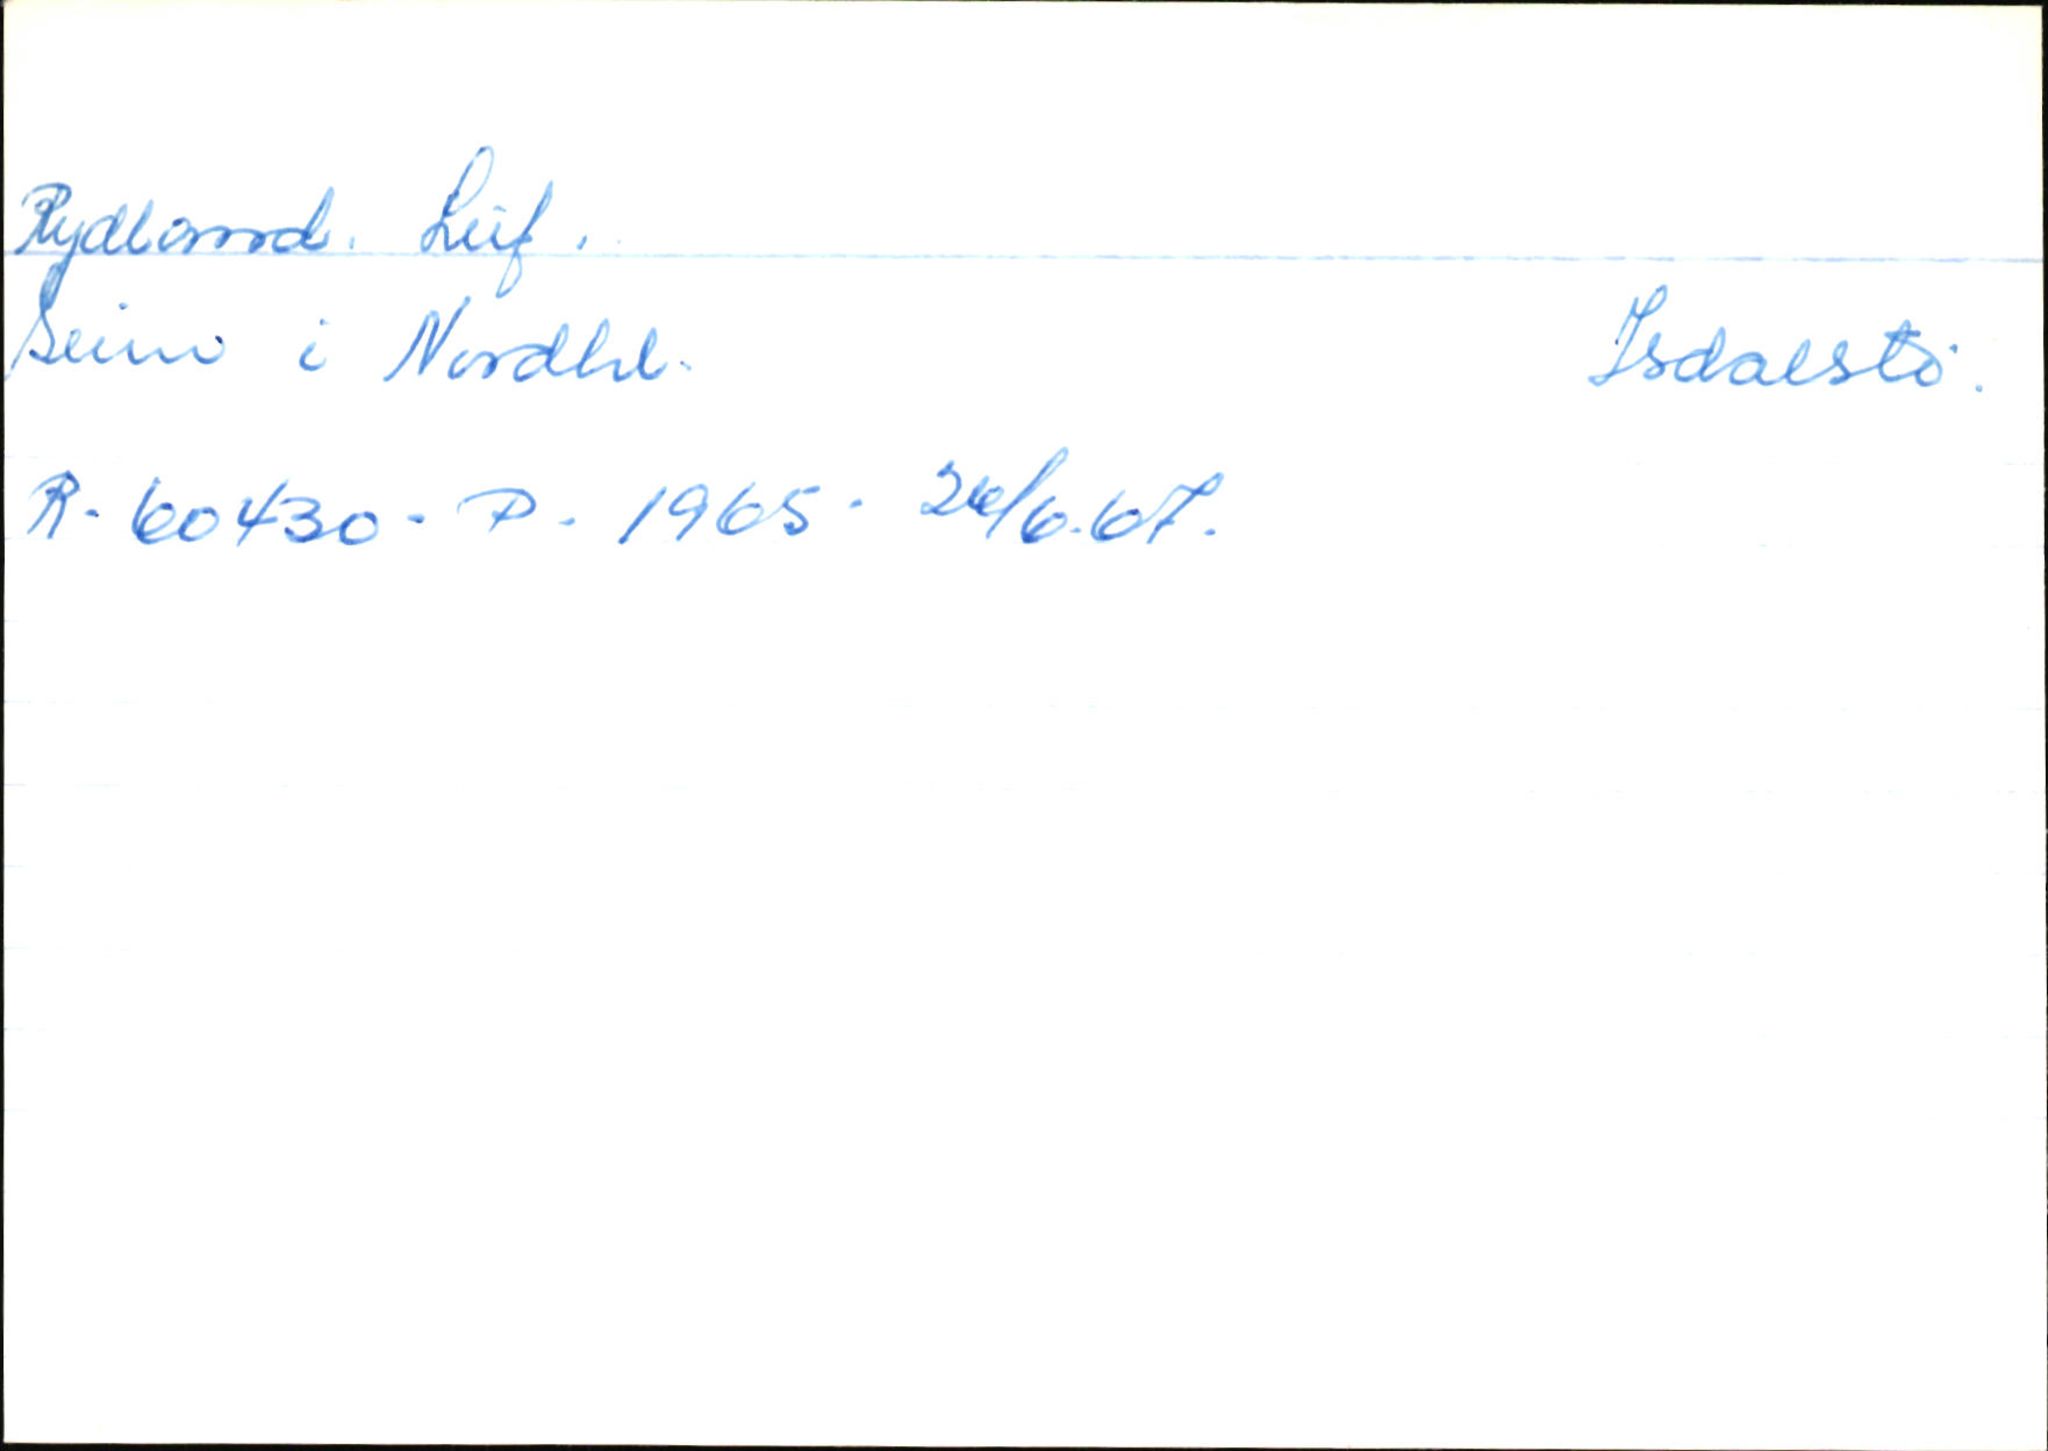 Rydland. Leif.
Seim i Nordhl. Isdalstö.
R-60430-P-1965-26/6.67.